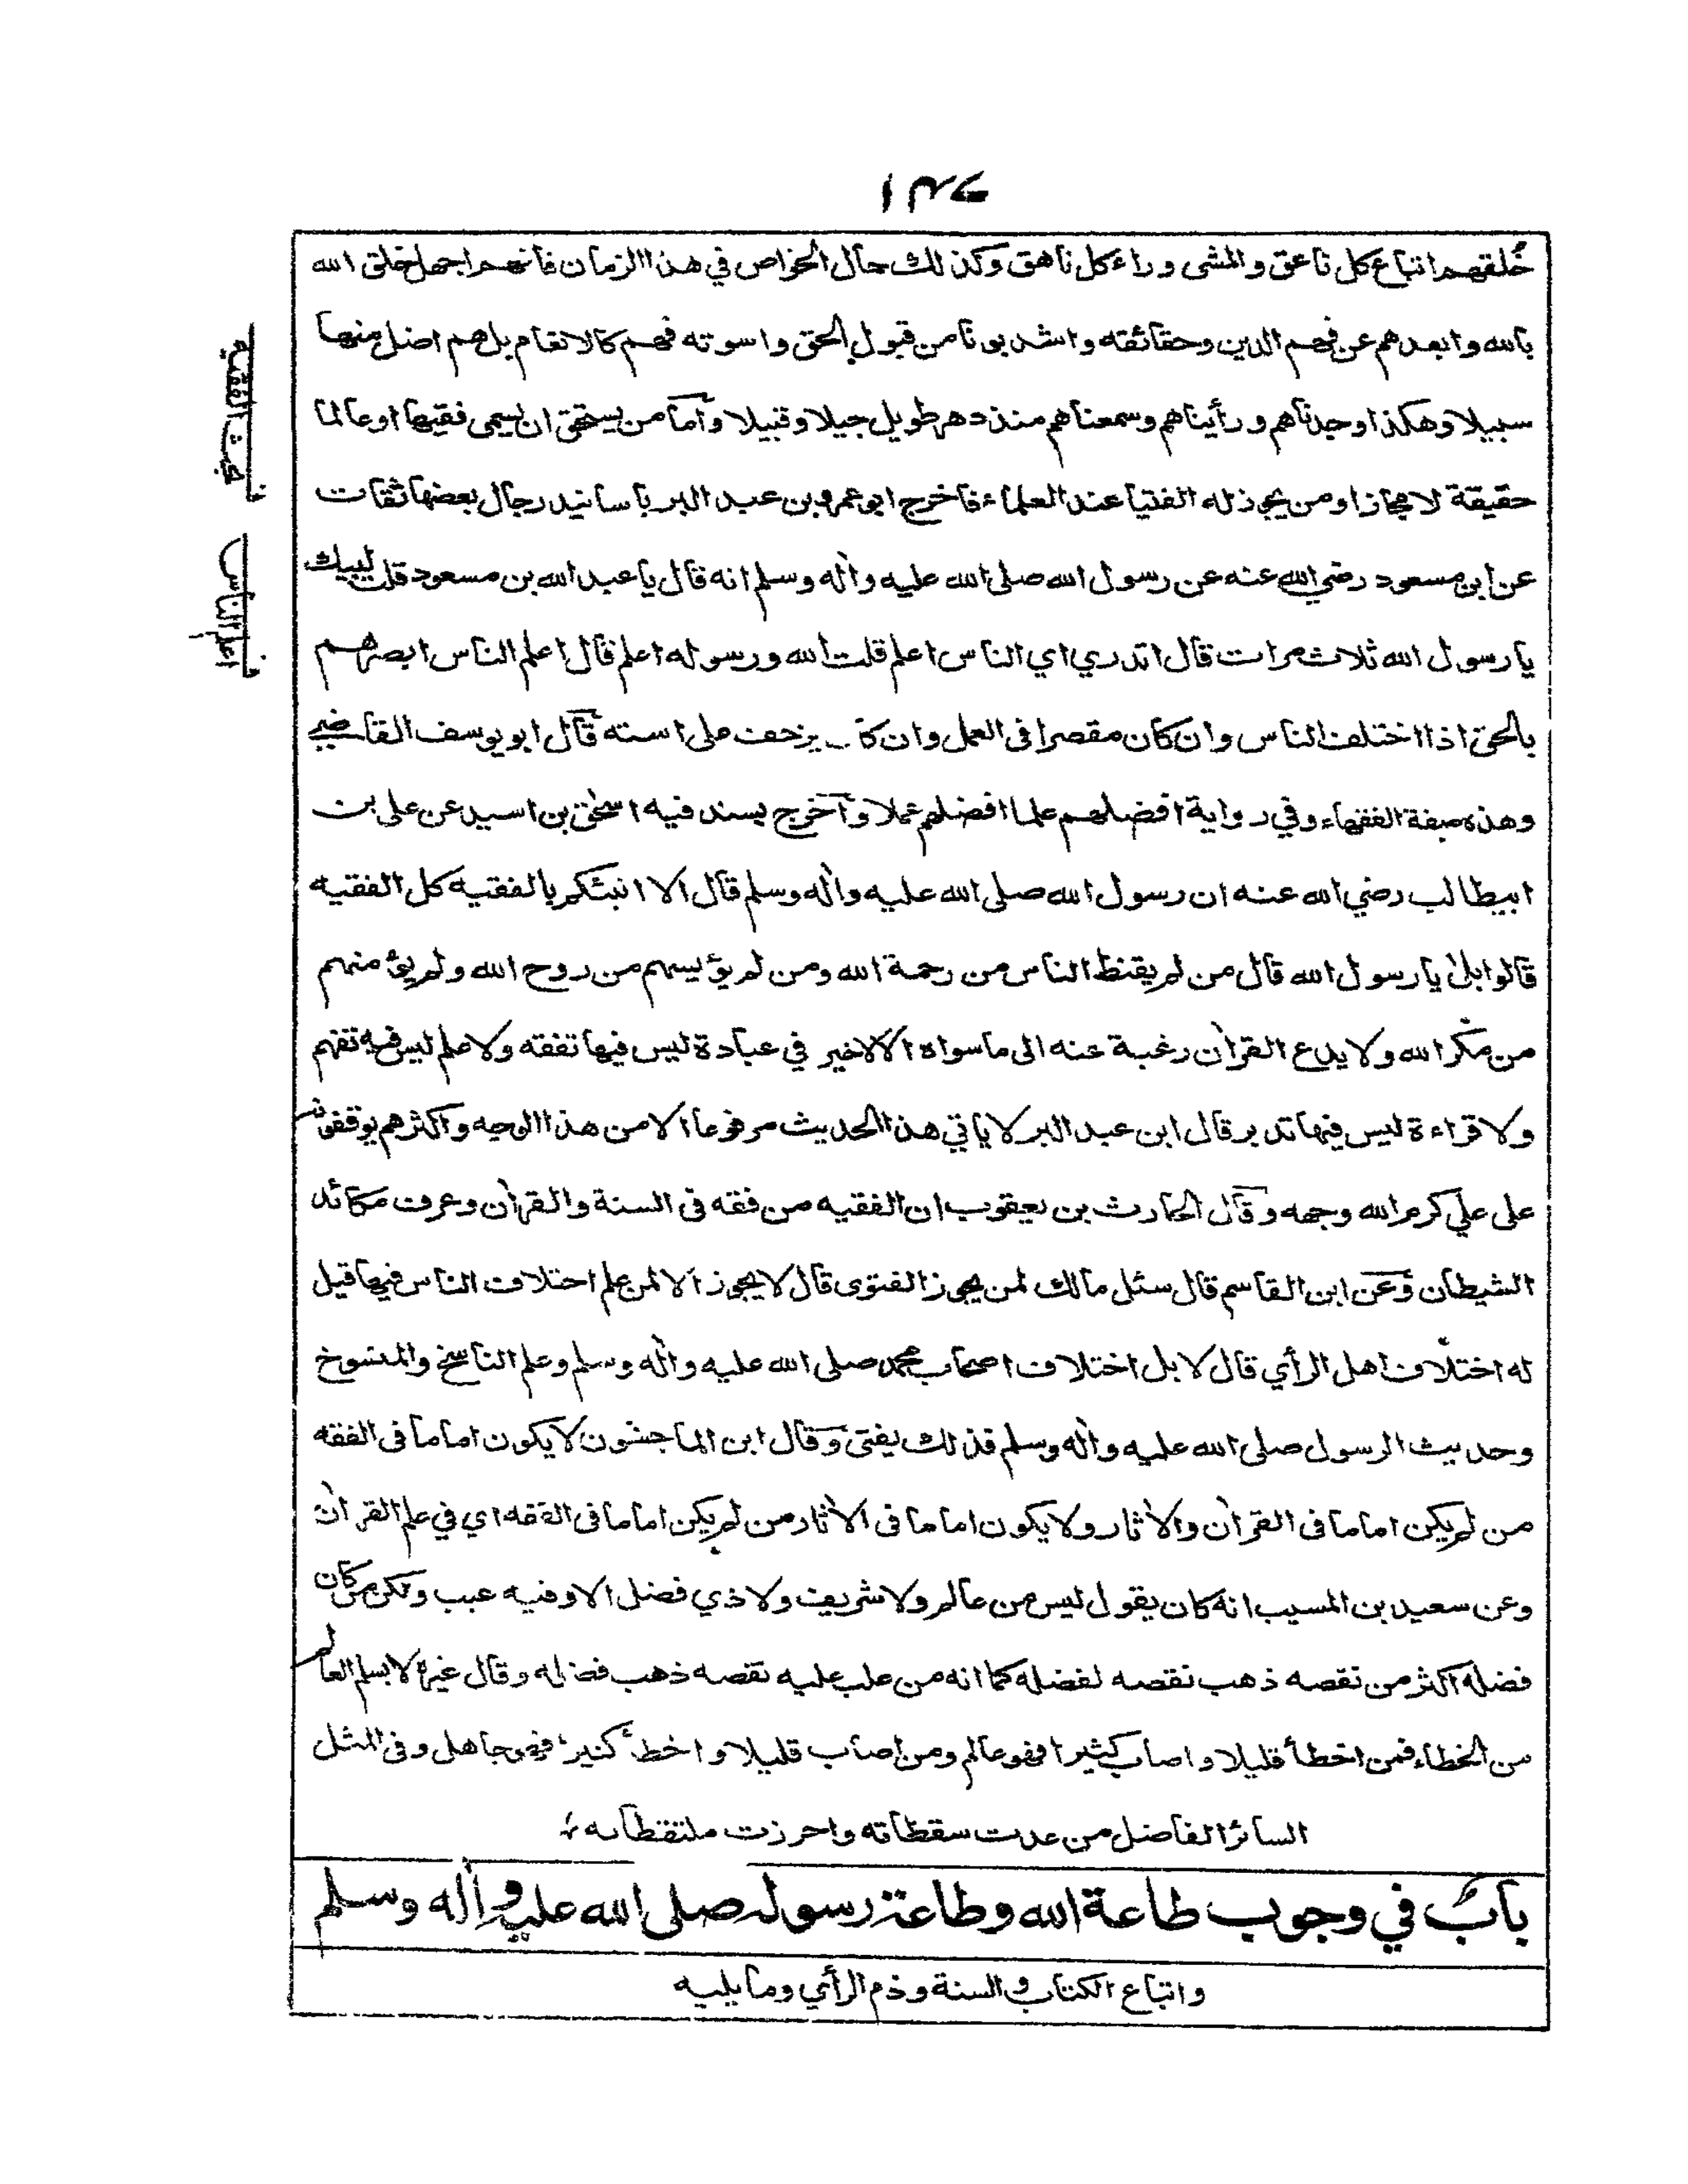 خلقهم اتباع كل ناعق والمشى وراء كل ناهق وكذلك حال الخواص في هذا الزمان فانهم اجهل خلق الله
بالله وابعدهم عن فهم الدين وحقائقه واشد بونا من قبول الحق واسوته فهم كالانعام بل هم اضل منها
سبيلا وهكذا وجدناهم ورأيناهم وسمعناهم منذ دهر طويل جيلا وقبيلا وأما من يستحق ان يسمى فقيها او عالما
حقيقة لا مجازا ومن يجوز له الفتيا عند العلماء فاخرج ابو عمرو بن عبد البر باسانيد رجال بعضها ثقات
عن ابن مسعود رضي الله عنه عن رسول الله صلى الله عليه واٰله وسلم انه قال يا عبد الله بن مسعود قلت لبيك
يا رسول الله ثلاث مرات قال اتدري اي الناس اعلم قلت الله ورسوله اعلم قال اعلم الناس ابصرهم
بالحق اذا اختلف الناس وان كان مقصرا فى العمل وان كان يزحف على استه قال ابو يوسف القاضي
وهذه صفة الفقهاء وفي رواية افضلهم علما افضلهم عملا وأخرج بسند فيه اسحٰق بن اسيد عن على بن
ابيطالب رضي الله عنه ان رسول الله صلى الله عليه واٰله وسلم قال الا انبئكم بالفقيه كل الفقيه
قالوا بلىٰ يا رسول الله قال من لم يقنط الناس من رحمة الله ومن لم يؤيسهم من روح الله ولم يؤمنهم
من مكر الله ولا يدع القراٰن رغبة عنه الى ما سواه الا لاخير في عبادة ليس فيها تفقه ولا علم ليس فيه تفهم
ولا قراءة ليس فيها تدبر قال ابن عبد البر لا ياتي هذا الحديث مرفوعا الا من هذا الوجه واكثرهم يوقفونه
على علي كرم الله وجهه وقال الحارث بن يعقوب ان الفقيه من فقه فى السنة والقراٰن وعرف مكائد
الشيطان وعن ابن القاسم قال سئل مالك لمن يجوز الفتوى قال لا يجوز الا لمن علم اختلاف الناس فيها قيل
له اختلاف اهل الرأي قال لا بل اختلاف اصحاب محمد صلى الله عليه واٰله وسلم وعلم الناسخ والمنسوخ
وحديث الرسول صلى الله عليه واٰله وسلم فذلك يفتى وقال ابن الماجشون لا يكون اماما فى الفقه
من لم يكن اماما فى القراٰن والاٰثار ولا يكون اماما فى الاٰثار من لم يكن اماما فى الفقه اي في علم القراٰن
وعن سعيد بن المسيب انه كان يقول ليس من عالم ولا شريف ولا ذي فضل الا وفيه عيب ولكن من كان
فضله اكثر من نقصه ذهب نقصه لفضله كما انه من غلب عليه نقصه ذهب فضله وقال غيره لا يسلم العالم
من الخطاء فمن اخطأ قليلا واصاب كثيرا فهو عالم ومن اصاب قليلا واخطأ كثيرا فهو جاهل وفى المثل
السائر الفاضل من عدت سقطاته واحرزت ملتقطاته
باب في وجوب طاعة الله وطاعة رسوله صلى الله عليه واٰله وسلم
واتباع الكتاب والسنة وذم الرأي وما يليه
ف مبحث الفقيه
ف اعلم الناس